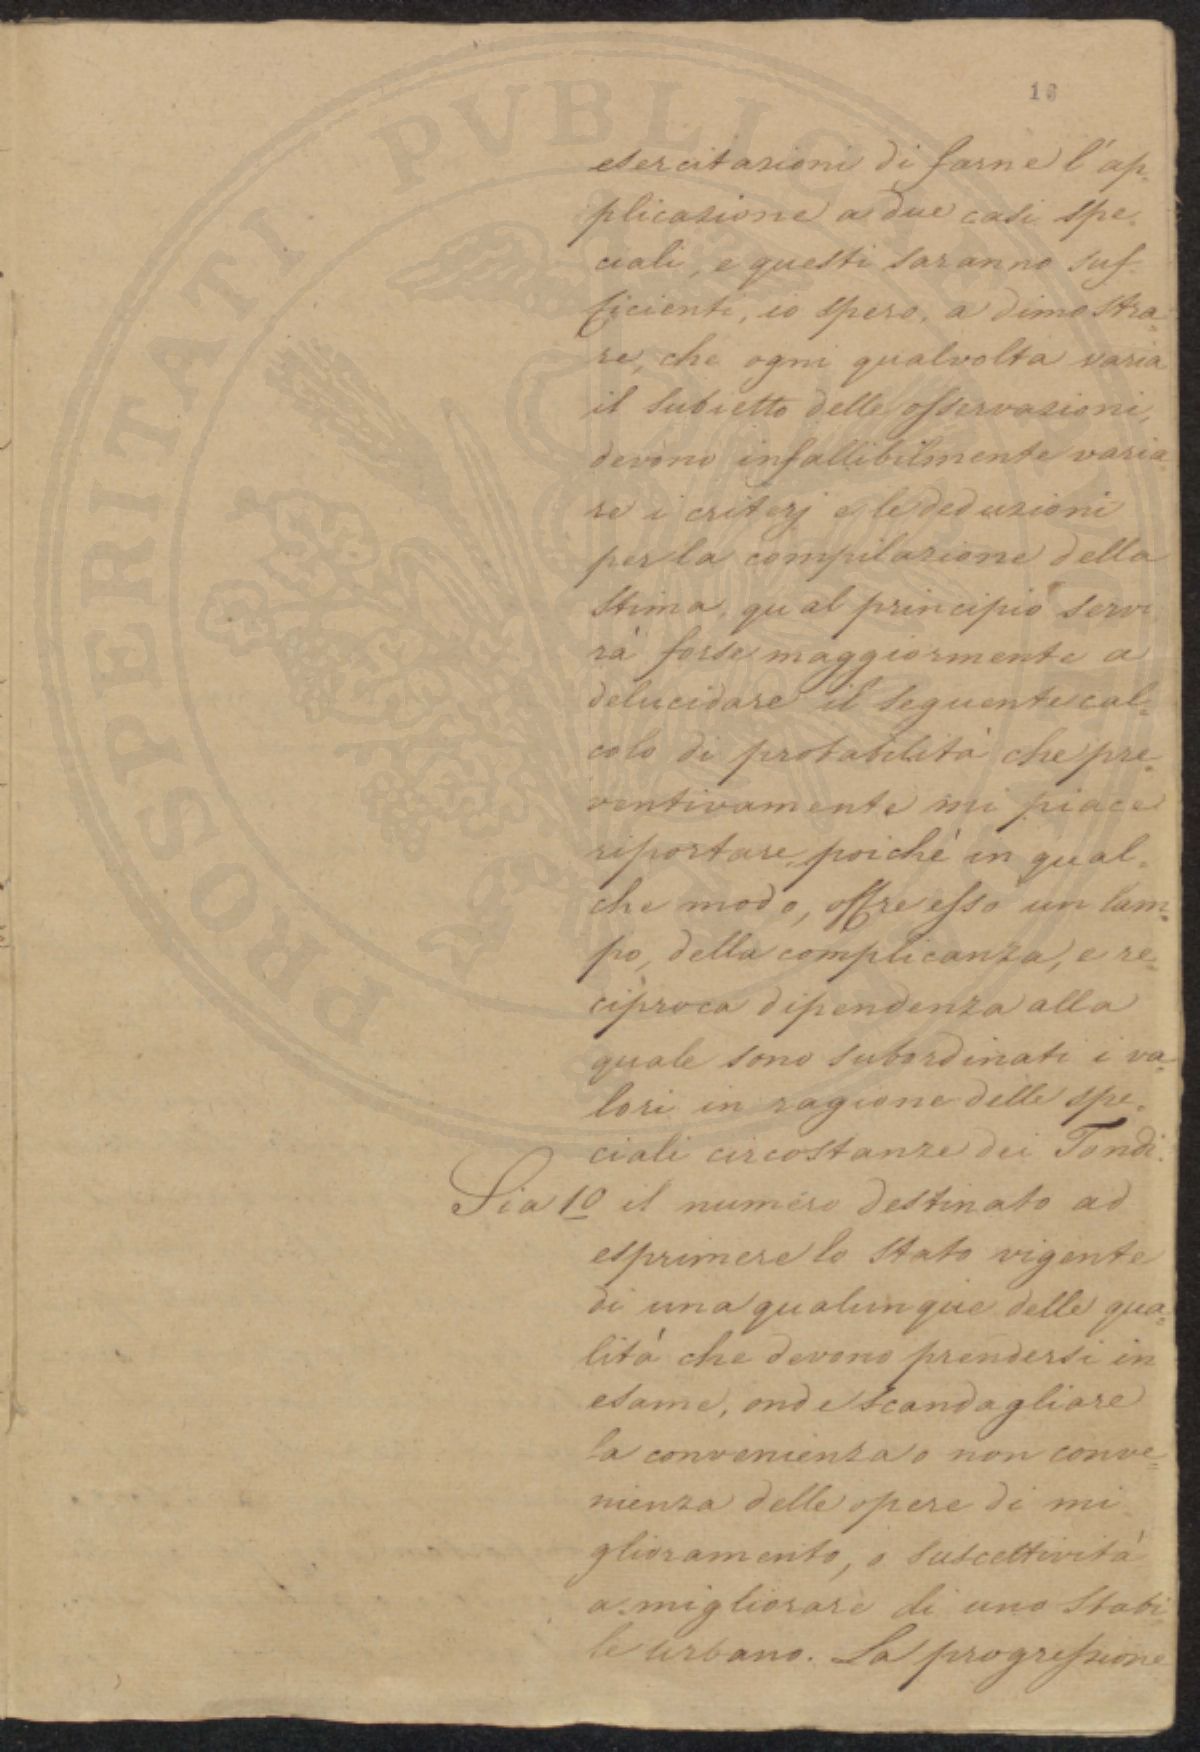 16
esercitazioni di farne l'ap-
plicazione a due casi spe-
ciali, e questi saranno suf-
ficienti, io spero, a dimostra-
re, che ogni qualvolta varia
il subietto delle osservazioni,
devono infallibilmente varia-
re i criterj e le deduzioni
per la compilazione della
stima, qual principio servi
rà forse maggiormente a
delucidare il seguente cal-
colo di probabilità che pre-
ventivamente mi piace
riportare, poichè in qual-
che modo, offre esso un lam-
po, della complicanza, e re-
ciproca dipendenza alla
quale sono subordinati i va-
lori in ragione delle spe-
ciali circostanze dei Fondi.
Sia 10 il numero destinato ad
esprimere lo stato vigente
di una qualunque delle qua-
lità che devono prendersi in
esame, onde scandagliare
la convenienza o non conve-
nienza delle opere di mi
glioramento, o suscettività
a migliorare di uno stabi-
le urbano. La progressione
PROSPERITATI PVBLICAE